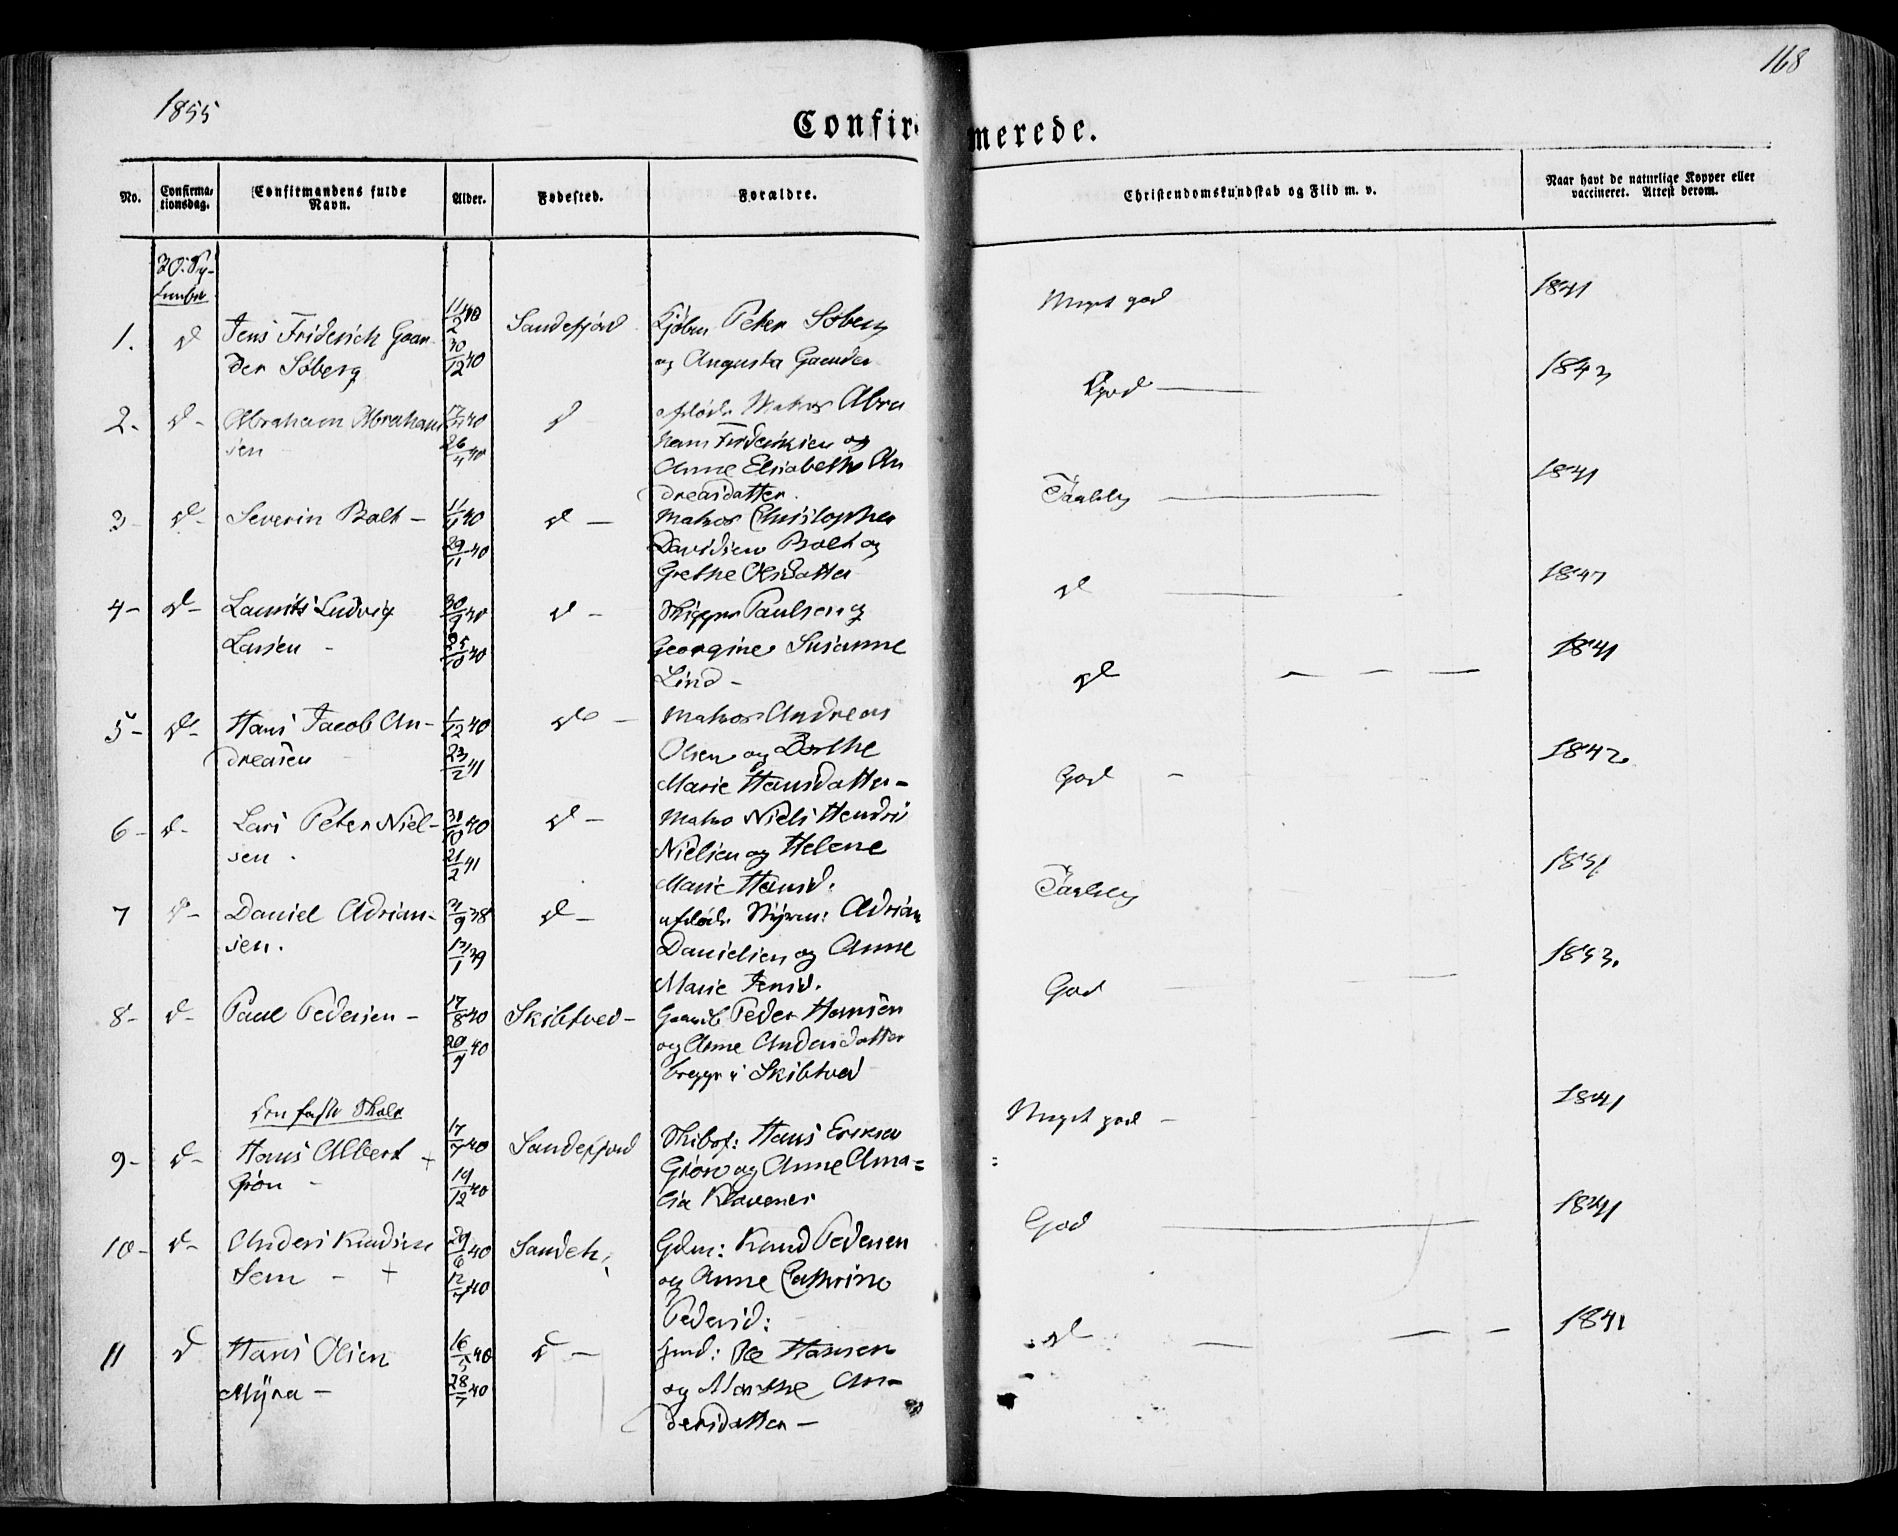 168
1855
Confirmerede.
No.
Confirma-
tionsdag.
Confirmandens fulde
Navn.
Alder.
Fødested.
Forældre.
Christendomskundskab og Flid m. v.
Naar havt de naturlige Kopper eller
vaccineret. Attest derom.
30. Sep-
tember
1. d Jens Friderich Gaar- 11/2 40 Sandefjord Kjøbm Peter Søberg Meget god 1841
der Søberg 30/12 40 og Augusta
2- d- Abraham Abraham 40 d afdøde Matros Abra God 1843
sen 26/4 40 ham Frideriksen og
Anne Elisabeth An
dreasdatter.
3- d- Severin Bolt - 40 d - Matros Christopher Taalelig 1841
29/11 40 Davidsen Bolt og
Grethe Olsdatter
4- d- Laurits Ludvig 30/9 40 d - Skipper Paulsen og d 1847
Larsen - 25/10 40 Georgine Susanne
Lind -
5- d- Hans Jacob An- 1/12 40 d - Matros Andreas d 1841
dreasen 23/2 41 Olsen og Dorthe
Marie Hansdatter-
6- d- Lars Peter Niel- 31/10 40 d - Matros Niels Hendri God 1842
sen . 21/2 41 Nielsen og Helene
Marie Hansd.
7 d- Daniel Adrian- 9 38 d - afdøde Styrm: Adrian Taalelig
sen. 13/1 39 Danielsen og Anne
Marie Jensd.
8- d- Paul Pedersen - 17/8 40 Skibtved- Peder Hansen God 1853.
20/9 40 og Anne Andersdatter
i Skibtved
den faste Skole
9- d- Hans Albert + 17/7 40 Sandefjord Skibst: Hans Eriksen Meget god 1841
Grøn - 19/12 40 Grøn og Anne Ama-
lia Klavenes
10- d- Anders Knudsen 29/6 40 Sandeh. Gdm: Knud Pedersen God 1841
Sem - + 12/7 40 og Anne Cathrine
Pedersd:
11 d Hans Olsen 16/5 40 d - Ole Hansen d 1841
Myra - 28/7 40 og Marthe An-
dersdatter -